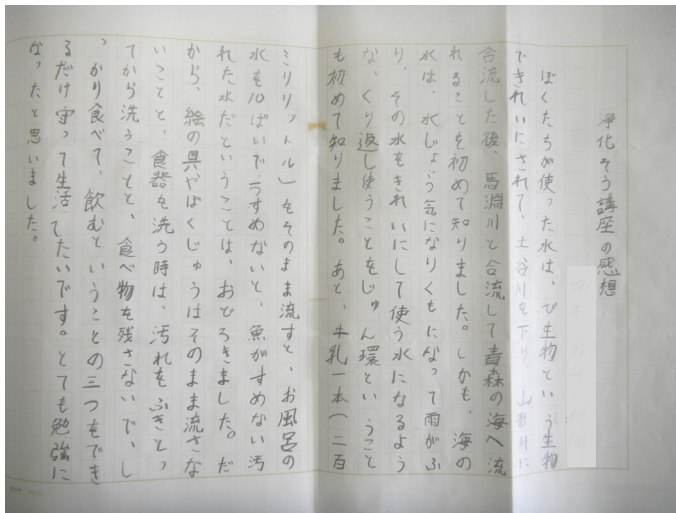 浄化そう講座の感想
ぼくたちが使った水は、び生物という生物
できれいにされて、土谷川を下り、
合流した後、馬淵川と合流して青森の海へ流
れることを初めて知りました。しかも、海の
水は、水じょう気になりくもになって雨がふ
り、その水をきれいにして使う水になるよう
な、くり返し使うことをじゅん環ということ
も初めて知りました。あと、牛乳一本(二百
ミリリットル)をそのまま流すと、お風呂の
水も10ぱいでうすめないと、魚がすめない汚
れた水だということは、おどろきました。だ
から、絵の具やぼくじゅうはそのまま流さな
いことと、食器を洗う時は、汚れをふきとっ
てから洗うことと、食べ物を残さないで、し
っかり食べて、飲むということの三つをでき
るだけ守って生活してたいです。とても勉強に
なったと思いました。